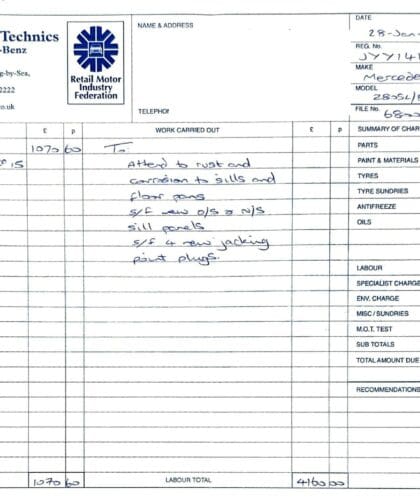 Technics
-Benz
g-by-Sea,
2222
o.uk
Retail Motor
Industry
Federation
NAME & ADDRESS
TELEPHON
DATE
28-Jan-
REG. No.
JYY141
MAKE
Mercede
MODEL
280SL/
FILE No.
6800
£ p WORK CARRIED OUT £ p SUMMARY OF CHAR
1070 60 To PARTS
15 Attend to rust and PAINT & MATERIALS
corrosion to sills and TYRES
floor pans TYRE SUNDRIES
s/f new o/s & n/s ANTIFREEZE
sill panels OILS
s/f 4 new jacking
point plugs.
LABOUR
SPECIALIST CHARGE
ENV. CHARGE
MISC / SUNDRIES
M.O.T. TEST
SUB TOTALS
TOTAL AMOUNT DUE
RECOMMENDATIONS
1070 60 LABOUR TOTAL 4160 00